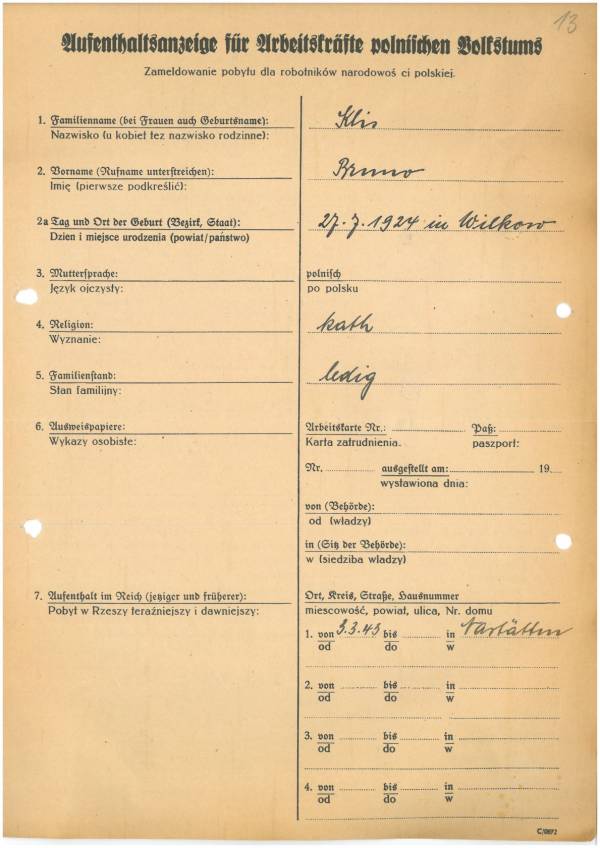 13
Aufenthaltsanzeige für Arbeitskräfte polnischen Volkstums
Zameldowanie pobytu dla robotników narodowoś ci polskiej.
1. Familienname (bei Frauen auch Geburtsname): Klis
Nazwisko (u kobiet też nazwisko rodzinne):
2. Vorname (Rufname unterstreichen): Bruno
Imię (pierwsze podkreślić):
2a Tag und Ort der Geburt (Bezirk, Staat): 27.7.1924 in Wilkow
Dzien i miejsce urodzenia (powiat/państwo)
3. Muttersprache: polnisch
Język ojczysty: po polsku
4. Religion: kath
Wyznanie:
5. Familienstand: ledig
Stan familijny:
6. Ausweispapiere: Arbeitskarte Nr.: Paß:
Wykazy osobiste: Karta zatrudnienia. paszport:
Nr. ausgestellt am: 19
wystawiona dnia:
von (Behörde):
od (władzy)
in (Sitz der Behörde):
w (siedziba wladzy)
7. Aufenthalt im Reich (jetziger und früherer): Ort, Kreis, Straße, Hausnummer
Pobyt w Rzeszy teraźniejszy i dawniejszy: miescowość, powiat, ulica, Nr. domu
1. von 3.3.43 bis in Nastätten
od do w
2. von bis in
od do w
3. von bis in
od do w
4. von bis in
od do w
C/0672